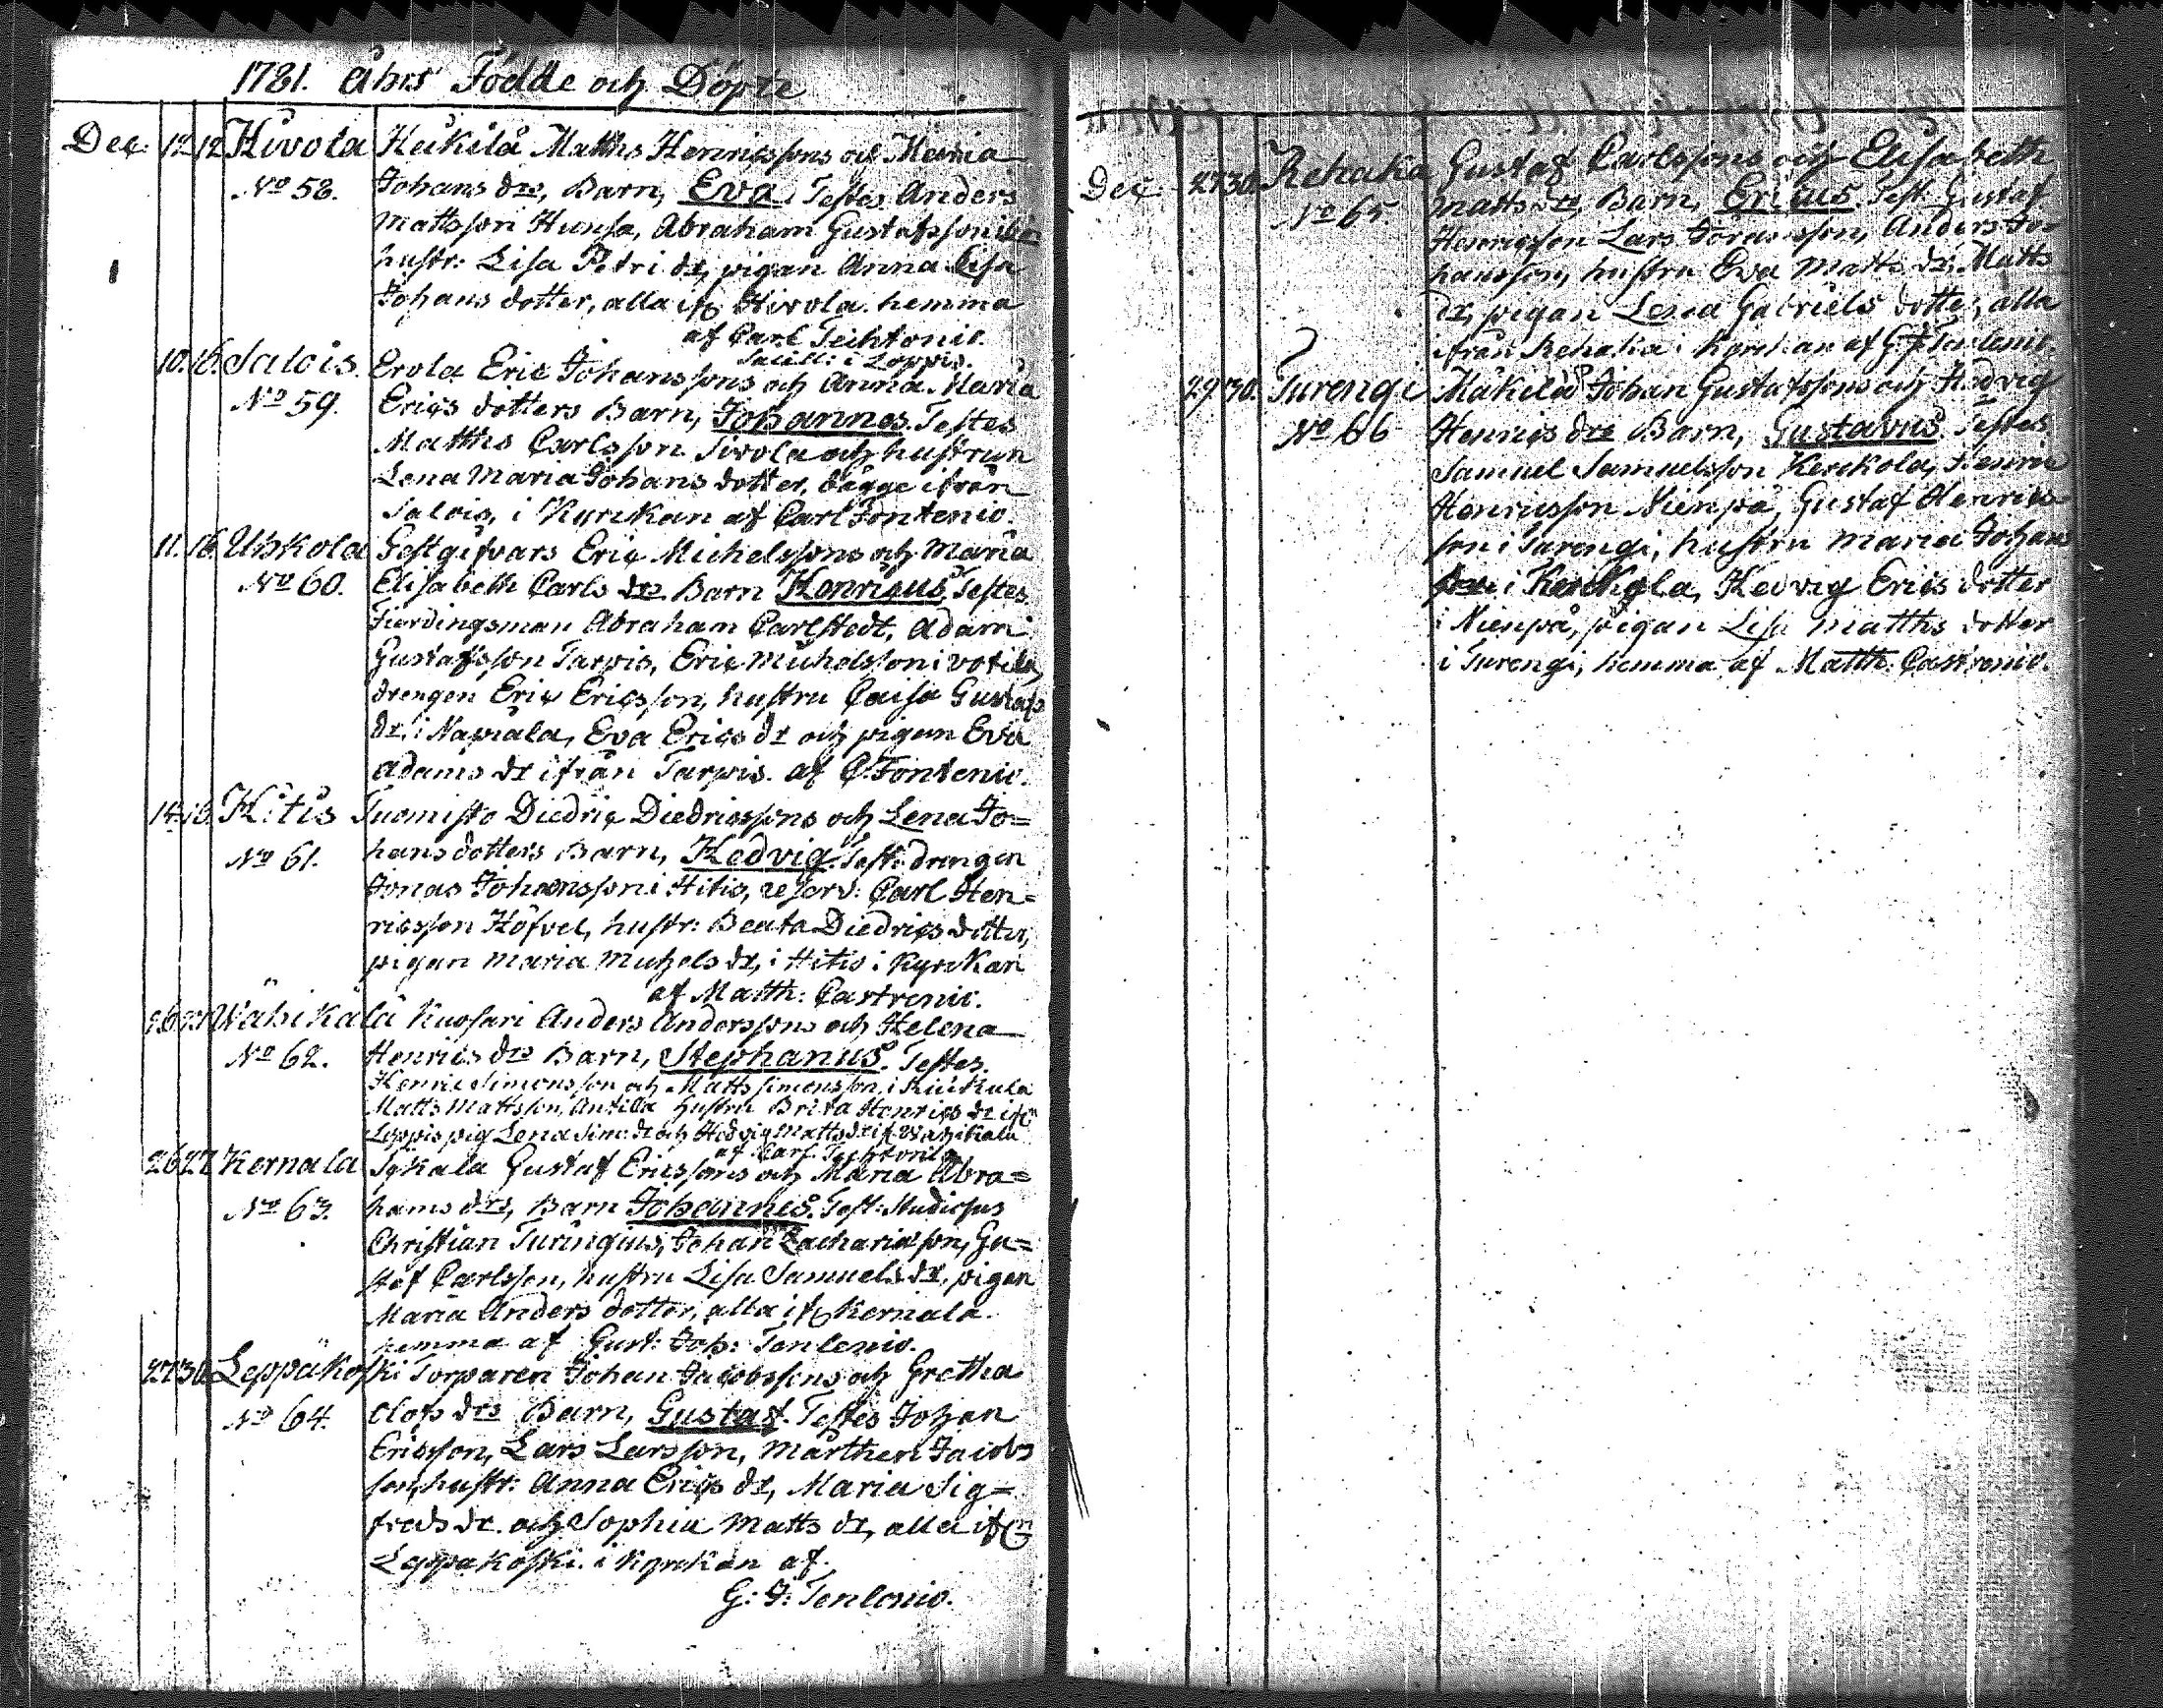 1781. åhrs Födde och Döpte
Dec: 12 12 Hivola Heikilä Matths Henricssons och Maria
No 58. Johans drs, Barn, Eva. Testes Anders
Mattsson Hunsa, Abraham Gustafsson
hustr: Lisa Petri dr, pigan Anna Lisa
Johans dotter, alla ifr Hivola. hemma
af Carl Techtonio.
Sacell: i Loppis.
10. 16. Salois. Erola Eric Johanssons och Anna Maria
No 59. Erics dotters Barn, Johannes. Testes
Matths Carlsson Sivola och hustrun
Lena Maria Johans dotter, bägge ifrån
Salois, i Kyrckan af Carl Fontenio.
11. 16. Uhkola Gestgifvars Eric Michelssons och Maria
No 60. Elisabeth Carls drs Barn Henricus, Testes
Fierdingsman Abraham Carlstedt, Adam
Gustafsson Tarpis, Eric Michelsson i Votila,
drengen Eric Ericsson, hustru Caisa Gustafs
dr, i Napiala, Eva Erics dr och pigan Eva
Adams dr ifrån Tarpis. af C. Fontenio.
14. 16. Hitis Tuomisto Diedric Diedricssons och Lena Jo=
No 61. hans dotters Barn, Hedvig. Test: drengen
Jonas Johansson i Hitis, reserv: Carl Hen=
ricsson Höfvel, hustr: Beata Diedrics dotter,
pigan Maria Michels dr, i Hitis i Kyrckan
af Matth: Castrenio.
Wähikälä Kuosari Anders Anderssons och Helena
No 62. Henrics drs Barn, Stephanus. Testes.
Henric Simonsson och Matts Simonsson, i
Matts Mattsson, Antila hustru Brita Henrics dr ifr
Leppis pig Lena Sim: dr och Hedvig Matts dr if Wähikälä
af Carl Techtonio
26 27 Kernala Sykala Gustaf Ericssons och Maria Abra=
No 63. hams drs, Barn Johannes. Test: Studiosus
Christian Turinquis, Johan Zachariasson, Gu=
staf Carlsson, hustru Lisa Samuels dr, pigan
Maria Anders dotter, alla ifr Kernala.
hemma af Gust: Joh: Tenlenio.
27 30 Leppäkoski Torparen Johan Jacobssons och Gretha
No 64. Olofs drs Barn, Gustaf. Testes Johan
Ericsson, Lars Larsson, Mårthen Jacobs
son, hustr: Anna Erics dr, Maria Sig=
freds dr. och Sophia Matts dr, alla ifrn
Leppäkoski. i Kyrckan af
G: J: Tenlenio.
Dec 27 30 Rehaka Gustaf Carlssons och Elisabeth
No 65 Matts drs, Barn, Ericus Test: Gustaf
Henricsson Lars Göransson, Anders Jo-
hansson, hustru Eva Matts dr, Matts
dr, pigan Lena Gabriels dotter, alla
ifrån Rehaka i Kyrckan af G J Tenlenio.
29. 30. Turengi Mäkilä Johan Gustafssons och Hedvig
No 66 Henrics drs Barn, Gustavus. Testes
Samuel Samuelsson Kerckola, Henric
Henricsson Nienpä, Gustaf Henrics
son i Turengi, hustru Maria Johans
i Kerckola, Hedvig Erics dotter
i Nienpä, pigan Lisa Matths dotter
i Turengi, hemma af Matth: Castrenio.